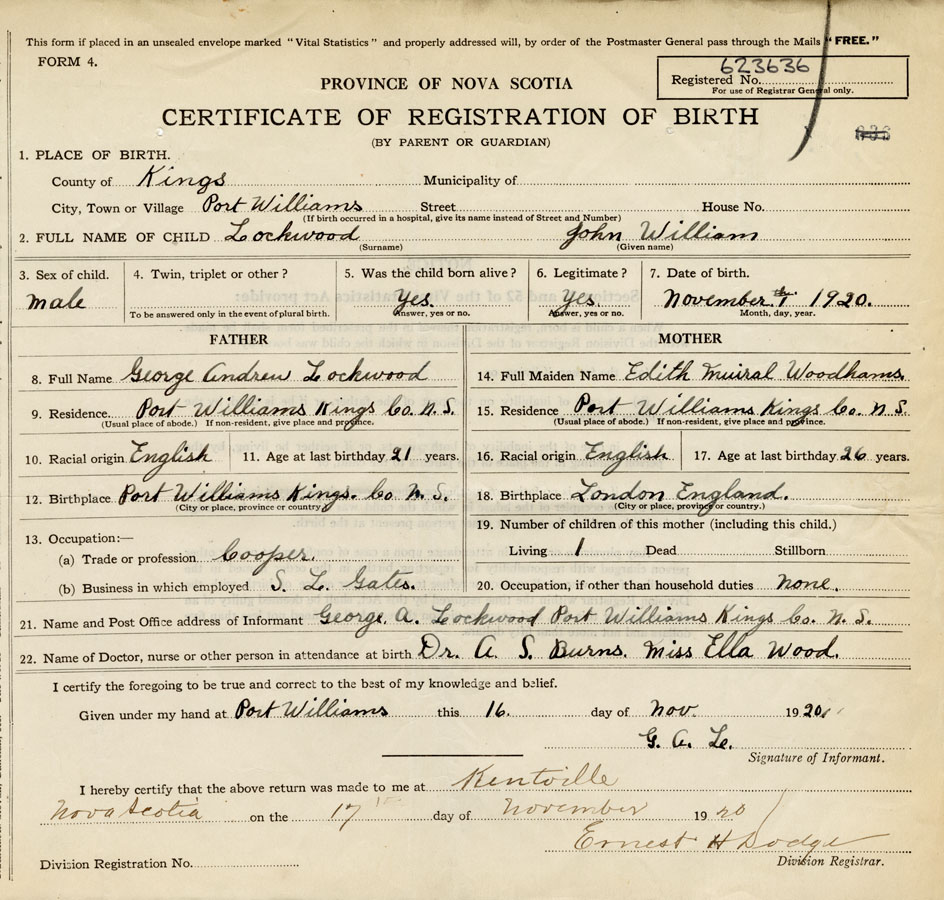 This form if placed in an unsealed envelope marked "Vital Statistics" and properly addressed will, by order of the Postmaster General pass through the Mails "FREE."
FORM 4.
623636
Registered No.
For use of Registrar General only.
PROVINCE OF NOVA SCOTIA
CERTIFICATE OF REGISTRATION OF BIRTH
(BY PARENT OR GUARDIAN)
1. PLACE OF BIRTH.
County of Kings Municipality of
City, Town or Village Port Williams Street House No.
(If birth occurred in a hospital, give its name instead of Street and Number)
2. FULL NAME OF CHILD Lockwood John William
(Surname) (Given name)
3. Sex of child. 4. Twin, triplet or other? 5. Was the child born alive? 6. Legitimate? 7. Date of birth.
male Yes. Yes. November 1920.
To be answered only in the event of plural birth. Answer, yes or no. Answer, yes or no. Month, day, year.
FATHER MOTHER
8. Full Name George Andrew Lockwood 14. Full Maiden Name Edith Woodhams
9. Residence. Port Williams Kings Co. N. S. 15. Residence Port Williams Kings Co. N. S.
(Usual place of abode.) If non-resident, give place and province. (Usual place of abode.) If non-resident, give place and province.
10. Racial origin English 11. Age at last birthday 21 years. 16. Racial origin English 17. Age at last birthday 26 years.
12. Birthplace Port Williams Kings. Co N. S. 18. Birthplace London England.
(City or place, province or country) (City or place, province or country.)
13. Occupation:— 19. Number of children of this mother (including this child.)
(a) Trade or profession Cooper. Living 1 Dead Stillborn
(b) Business in which employed S. L. Gates. 20. Occupation, if other than household duties none.
21. Name and Post Office address of Informant George. A. Lockwood Port Williams Kings Co. N. S.
22. Name of Doctor, nurse or other person in attendance at birth Dr. A. S. Burns. Miss Ella Wood.
I certify the foregoing to be true and correct to the best of my knowledge and belief.
Given under my hand at Port Williams this 16. day of Nov. 1920.
G. A. L.
Signature of Informant.
I hereby certify that the above return was made to me at Kentville
Nova Scotia on the 17th day of November 1920
Ernest H Dodge
Division Registration No. Division Registrar.